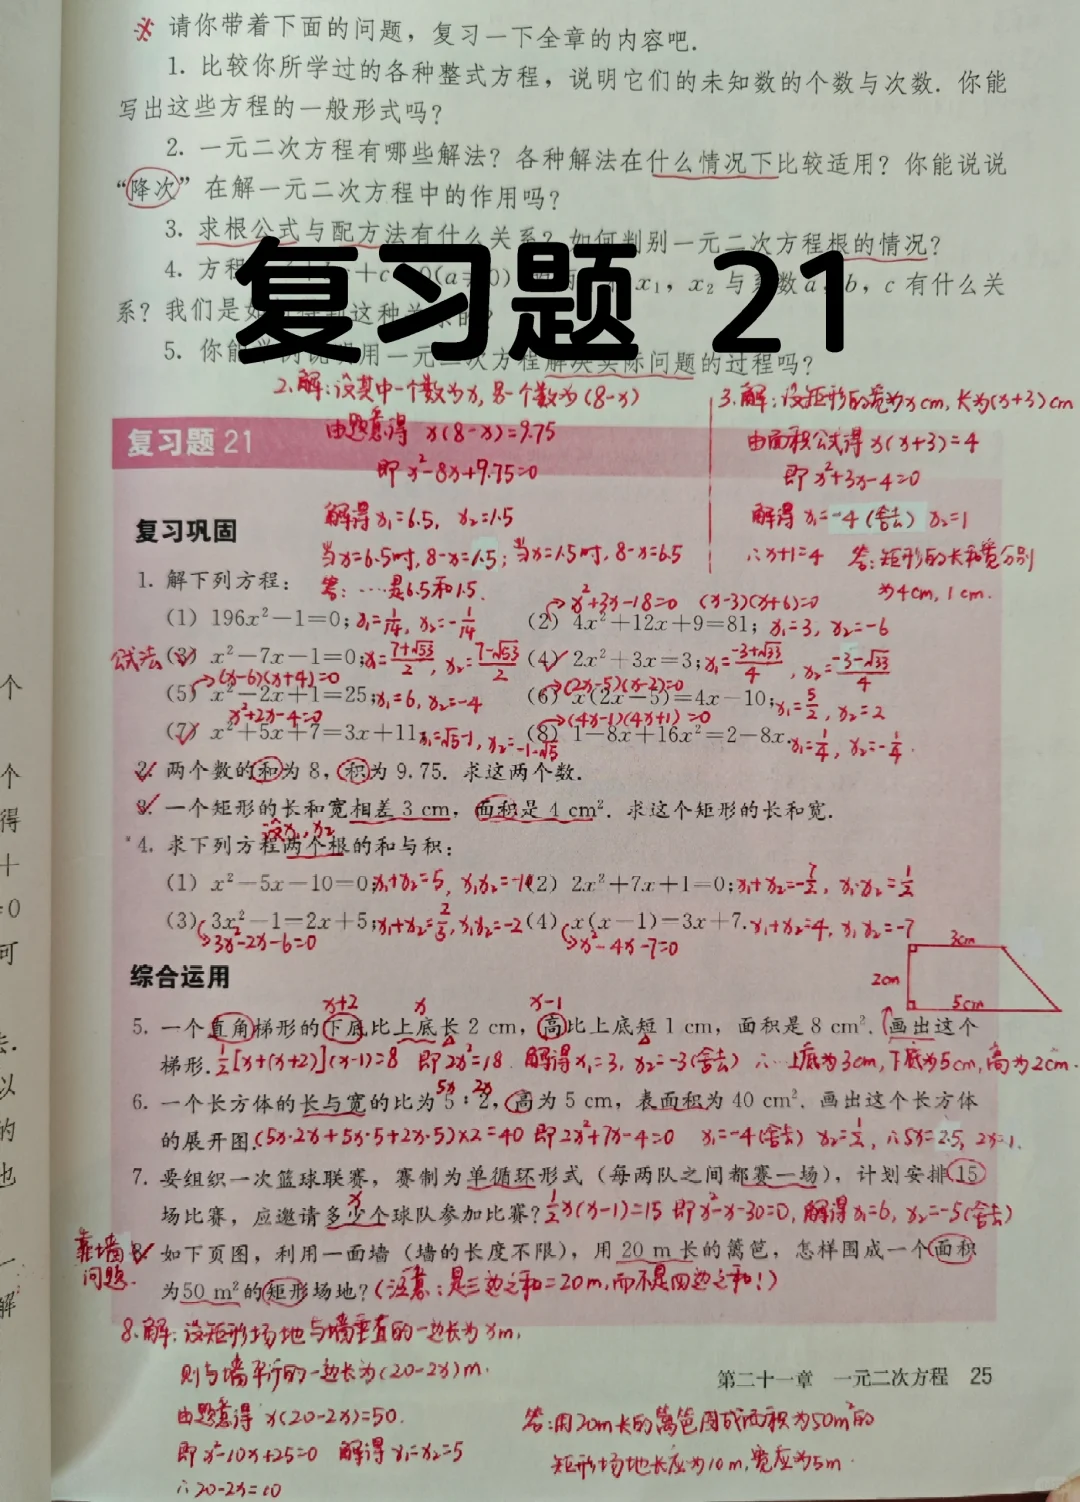 请你带着下面的问题，复习一下全章的内容吧.
1. 比较你所学过的各种整式方程，说明它们的未知数的个数与次数. 你能
写出这些方程的一般形式吗？
2. 一元二次方程有哪些解法？各种解法在什么情况下比较适用？你能说说
“降次”在解一元二次方程中的作用吗？
3. 求根公式与配方法有什么关系？如何判别一元二次方程根的情况？
4. 方程 +c 0(a≠0) x₁，x₂与系数a，b，c有什么关
系？我们是如 这种 的？
5. 你能举例说明用一元二次方程解决实际问题的过程吗？
复习题 21
2.解：设其中一个数为x，另一个数为(8-x)
由题意得 x(8-x)=9.75
即 x²-8x+9.75=0
解得 x₁=6.5，x₂=1.5
当x=6.5时，8-x=1.5；当x=1.5时，8-x=6.5
答：……是6.5和1.5.
3.解：设矩形的宽为xcm，长为(x+3)cm
由面积公式得 x(x+3)=4
即 x²+3x-4=0
解得 x₁=-4(舍去) x₂=1
∴x+1=4 答：矩形的长和宽分别
为4cm，1cm.
复习题 21
复习巩固
1. 解下列方程：
x²+3x-18=0 (x-3)(x+6)=0
(1) 196x²-1=0；x₁=1/14，x₂=-1/14 (2) 4x²+12x+9=81；x₁=3，x₂=-6
公式法 (3) x²-7x-1=0；x₁=(7+√53)/2，x₂=(7-√53)/2 (4) 2x²+3x=3；x₁=(-3+√33)/4，x₂=(-3-√33)/4
(x-6)(x+4)=0 (2x-5)(x-2)=0
(5) x²-2x+1=25；x₁=6，x₂=-4 (6) x(2x-5)=4x-10；x₁=5/2，x₂=2
x²+2x-4=0 (4x-1)(4x+1)=0
(7) x²+5x+7=3x+11；x₁=√5-1，x₂=-1-√5 (8) 1-8x+16x²=2-8x. x₁=1/4，x₂=-1/4.
2. 两个数的和为8，积为9.75. 求这两个数.
3. 一个矩形的长和宽相差3 cm，面积是4 cm². 求这个矩形的长和宽.
设x₁，x₂
4. 求下列方程两个根的和与积：
(1) x²-5x-10=0；x₁+x₂=5，x₁x₂=-10 (2) 2x²+7x+1=0；x₁+x₂=-7/2，x₁·x₂=1/2
(3) 3x²-1=2x+5；x₁+x₂=2/3，x₁x₂=-2 (4) x(x-1)=3x+7. x₁+x₂=4，x₁x₂=-7
3x²-2x-6=0 x²-4x-7=0
3cm
2cm
5cm
综合运用
x+2 x x-1
5. 一个直角梯形的下底比上底长2 cm，高比上底短1 cm，面积是8 cm². 画出这个
梯形. ½[x+(x+2)](x-1)=8 即2x²=18. 解得x₁=3，x₂=-3(舍去) ∴上底为3cm，下底为5cm，高为2cm.
5x 2x
6. 一个长方体的长与宽的比为5：2，高为5 cm，表面积为40 cm². 画出这个长方体
的展开图. (5x·2x+5x·5+2x·5)×2=40 即2x²+7x-4=0 x₁=-4(舍去) x₂=½，∴5x=2.5，2x=1.
7. 要组织一次篮球联赛，赛制为单循环形式（每两队之间都赛一场），计划安排15
x
场比赛，应邀请多少个球队参加比赛？½x(x-1)=15 即x²-x-30=0，解得x₁=6，x₂=-5(舍去)
靠墙问题.
8. 如下页图，利用一面墙（墙的长度不限），用20 m长的篱笆，怎样围成一个面积
为50 m²的矩形场地？(注意：是三边之和=20m，而不是四边之和！)
8.解：设矩形场地与墙垂直的一边长为xm，
则与墙平行的一边长为(20-2x)m.
由题意得 x(20-2x)=50.
即x²-10x+25=0 解得x₁=x₂=5
∴20-2x=10
答：用20m长的篱笆围成面积为50m²的
矩形场地长应为10m，宽应为5m.
第二十一章 一元二次方程 25
个
个
得
十
=0
可
去.
以
的
也
解